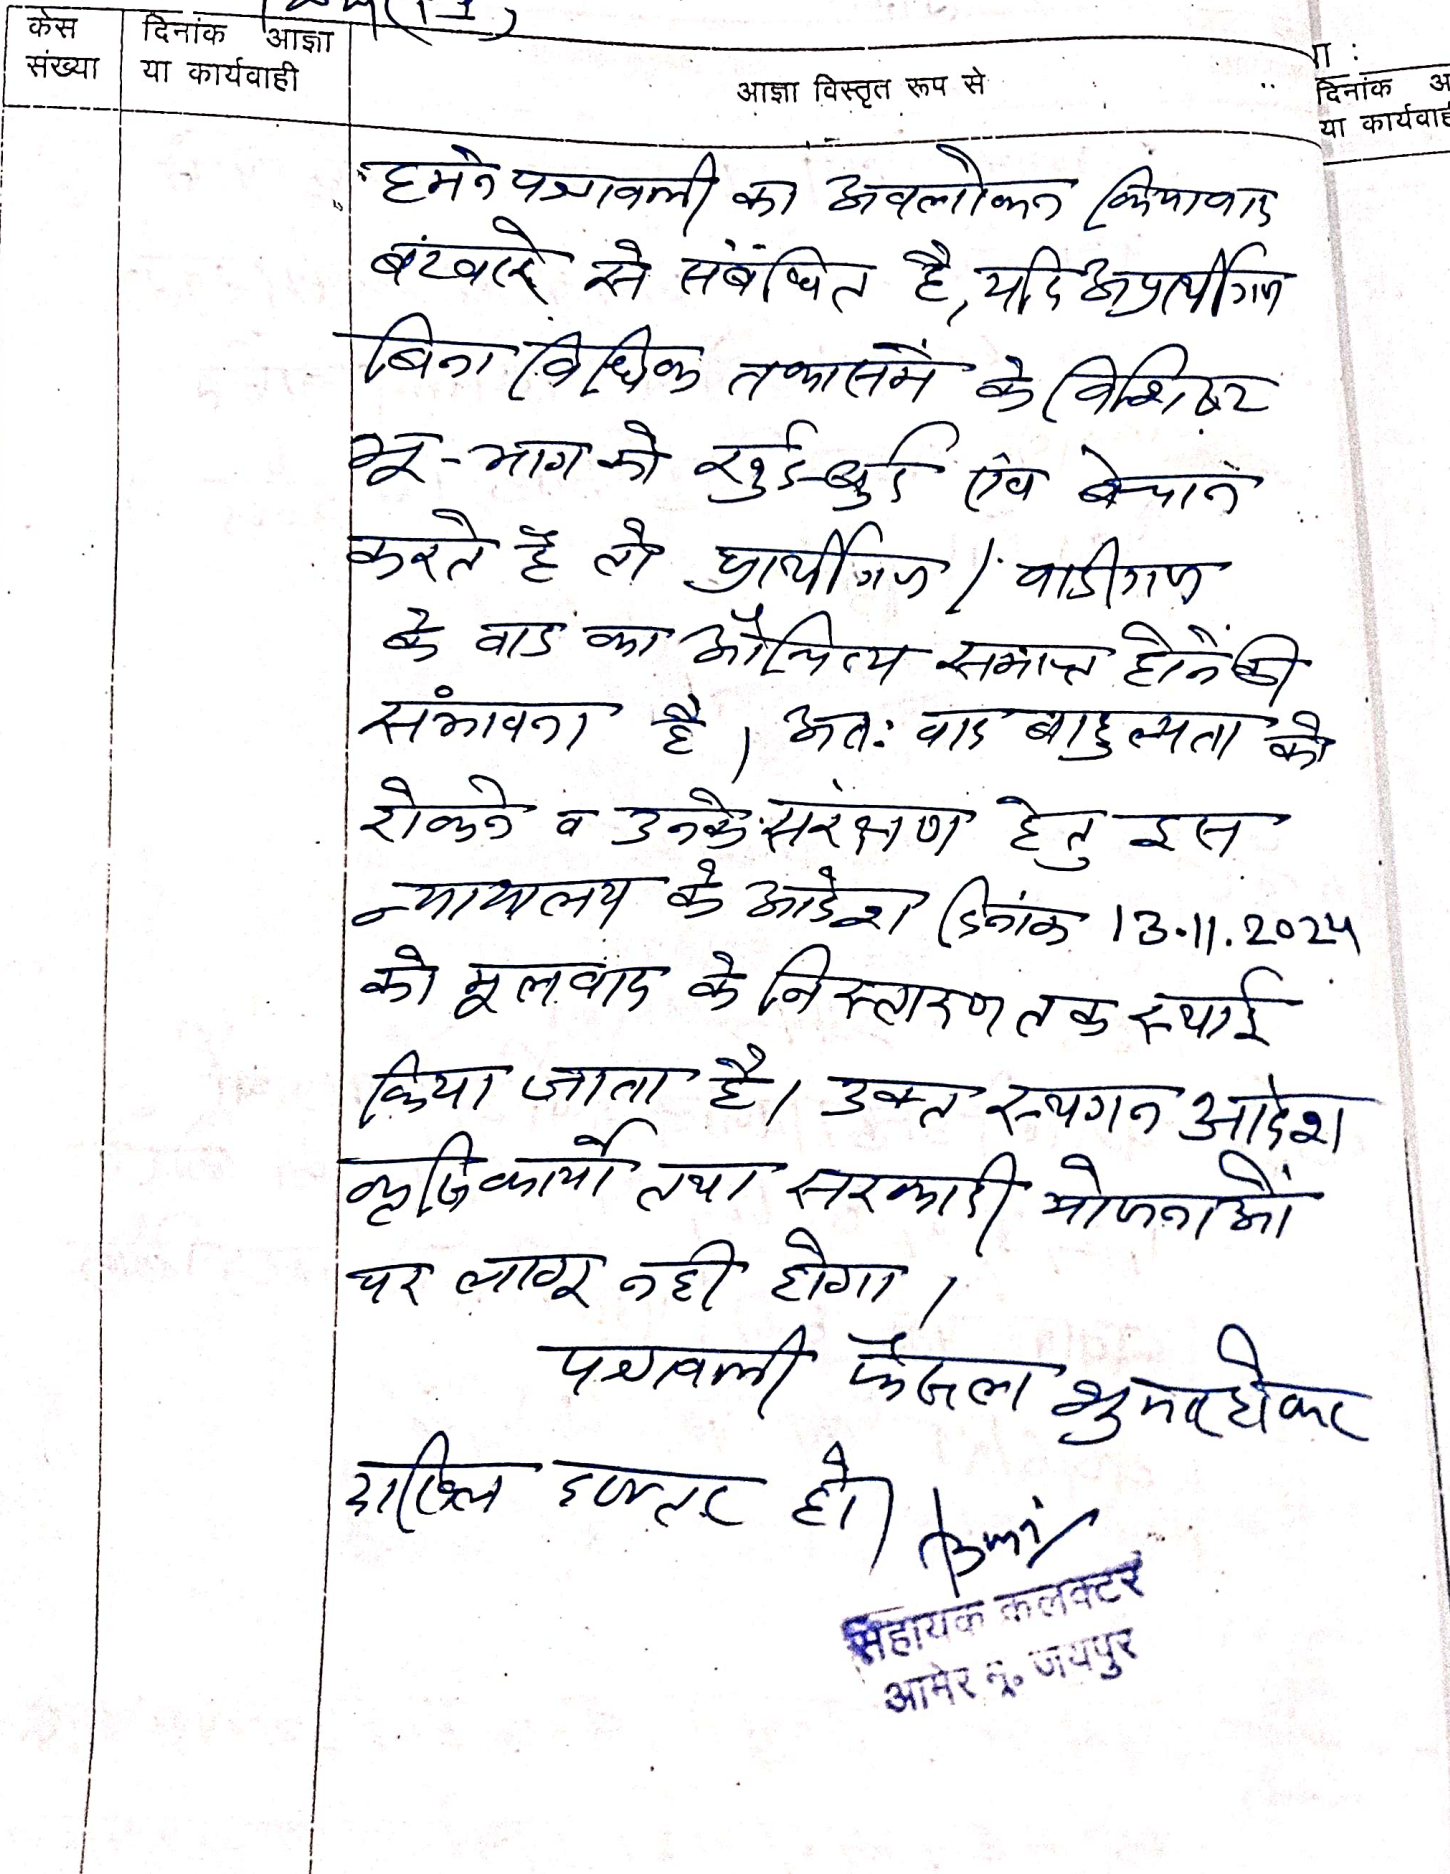 केस संख्या
दिनांक आज्ञा या कार्यवाही
आज्ञा विस्तृत रूप से
दिनांक
या कार्यवाह
हमने पत्रावली का अवलोकन किया वाद
बंटवारे से संबंधित है, यदि अप्रार्थीगण
बिना विधिक तकासमें के विशिष्ट
भू-भाग को खुर्द-बुर्द एंव बेचान
करते है तो प्रार्थीगण / वादीगण
के वाद का औचित्य समाप्त होने की
संभावना है। अतः वाद बाहुल्यता को
रोकने व उनके संरक्षण हेतु इस
न्यायालय के आदेश दिनांक 13.11.2024
को मूलवाद के निस्तारण तक स्थाई
किया जाता है। उक्त स्थगन आदेश
कृषि कार्यो तथा सरकारी योजनाओं
पर लागू नही होगा।
पत्रावली फैसल शुमार होकर
दाखिल दफ्तर हो।
सहायक कलक्टर
आमेर मु० जयपुर